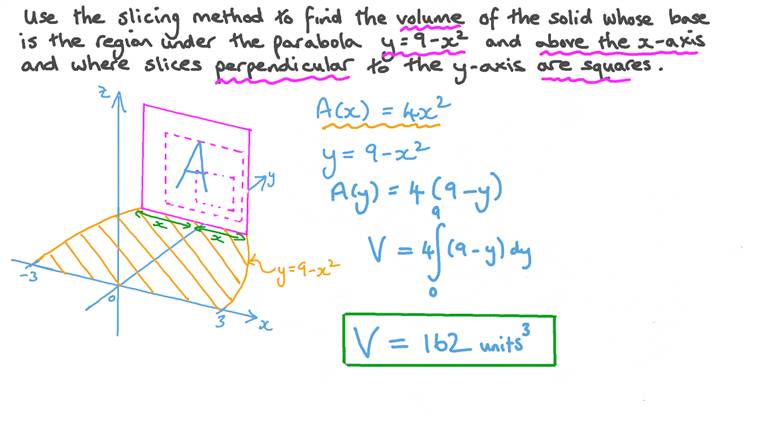 Use the slicing method to find the volume of the solid whose base
is the region under the parabola y = 9 - x² and above the x-axis
and where slices perpendicular to the y-axis are squares.
z
A(x) = 4x²
y = 9 - x²
A
y
A(y) = 4(9 - y)
x x
V = 4∫₀⁹(9 - y) dy
y = 9 - x²
-3
0
3
x
V = 162 units³